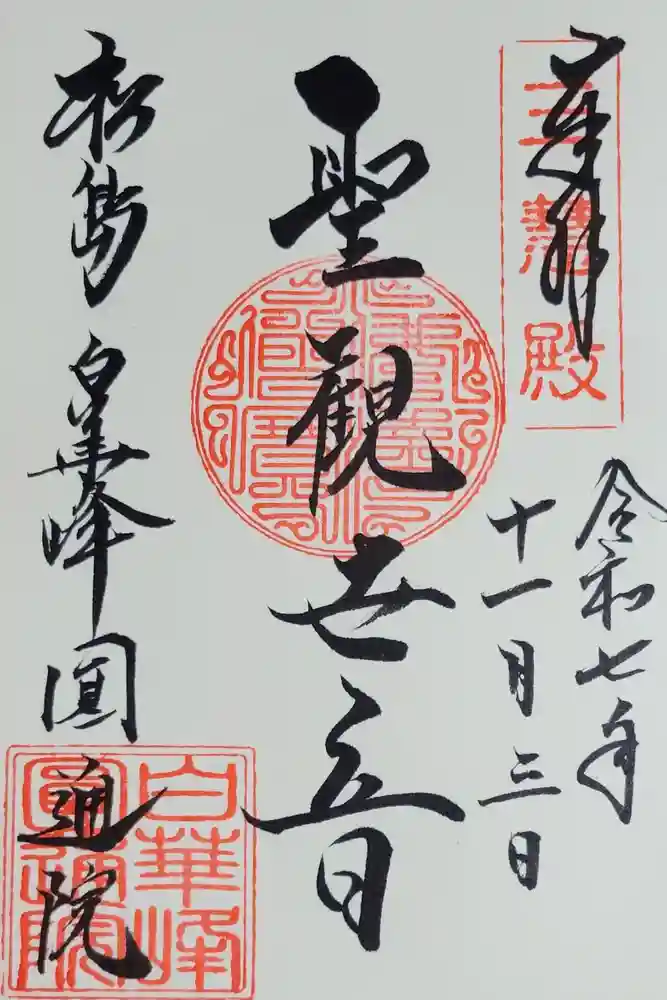 奉拝
三慧殿
令和七年
十一月三日
聖觀世音
松島 白華峰 圓通院
白華峰
圓通院